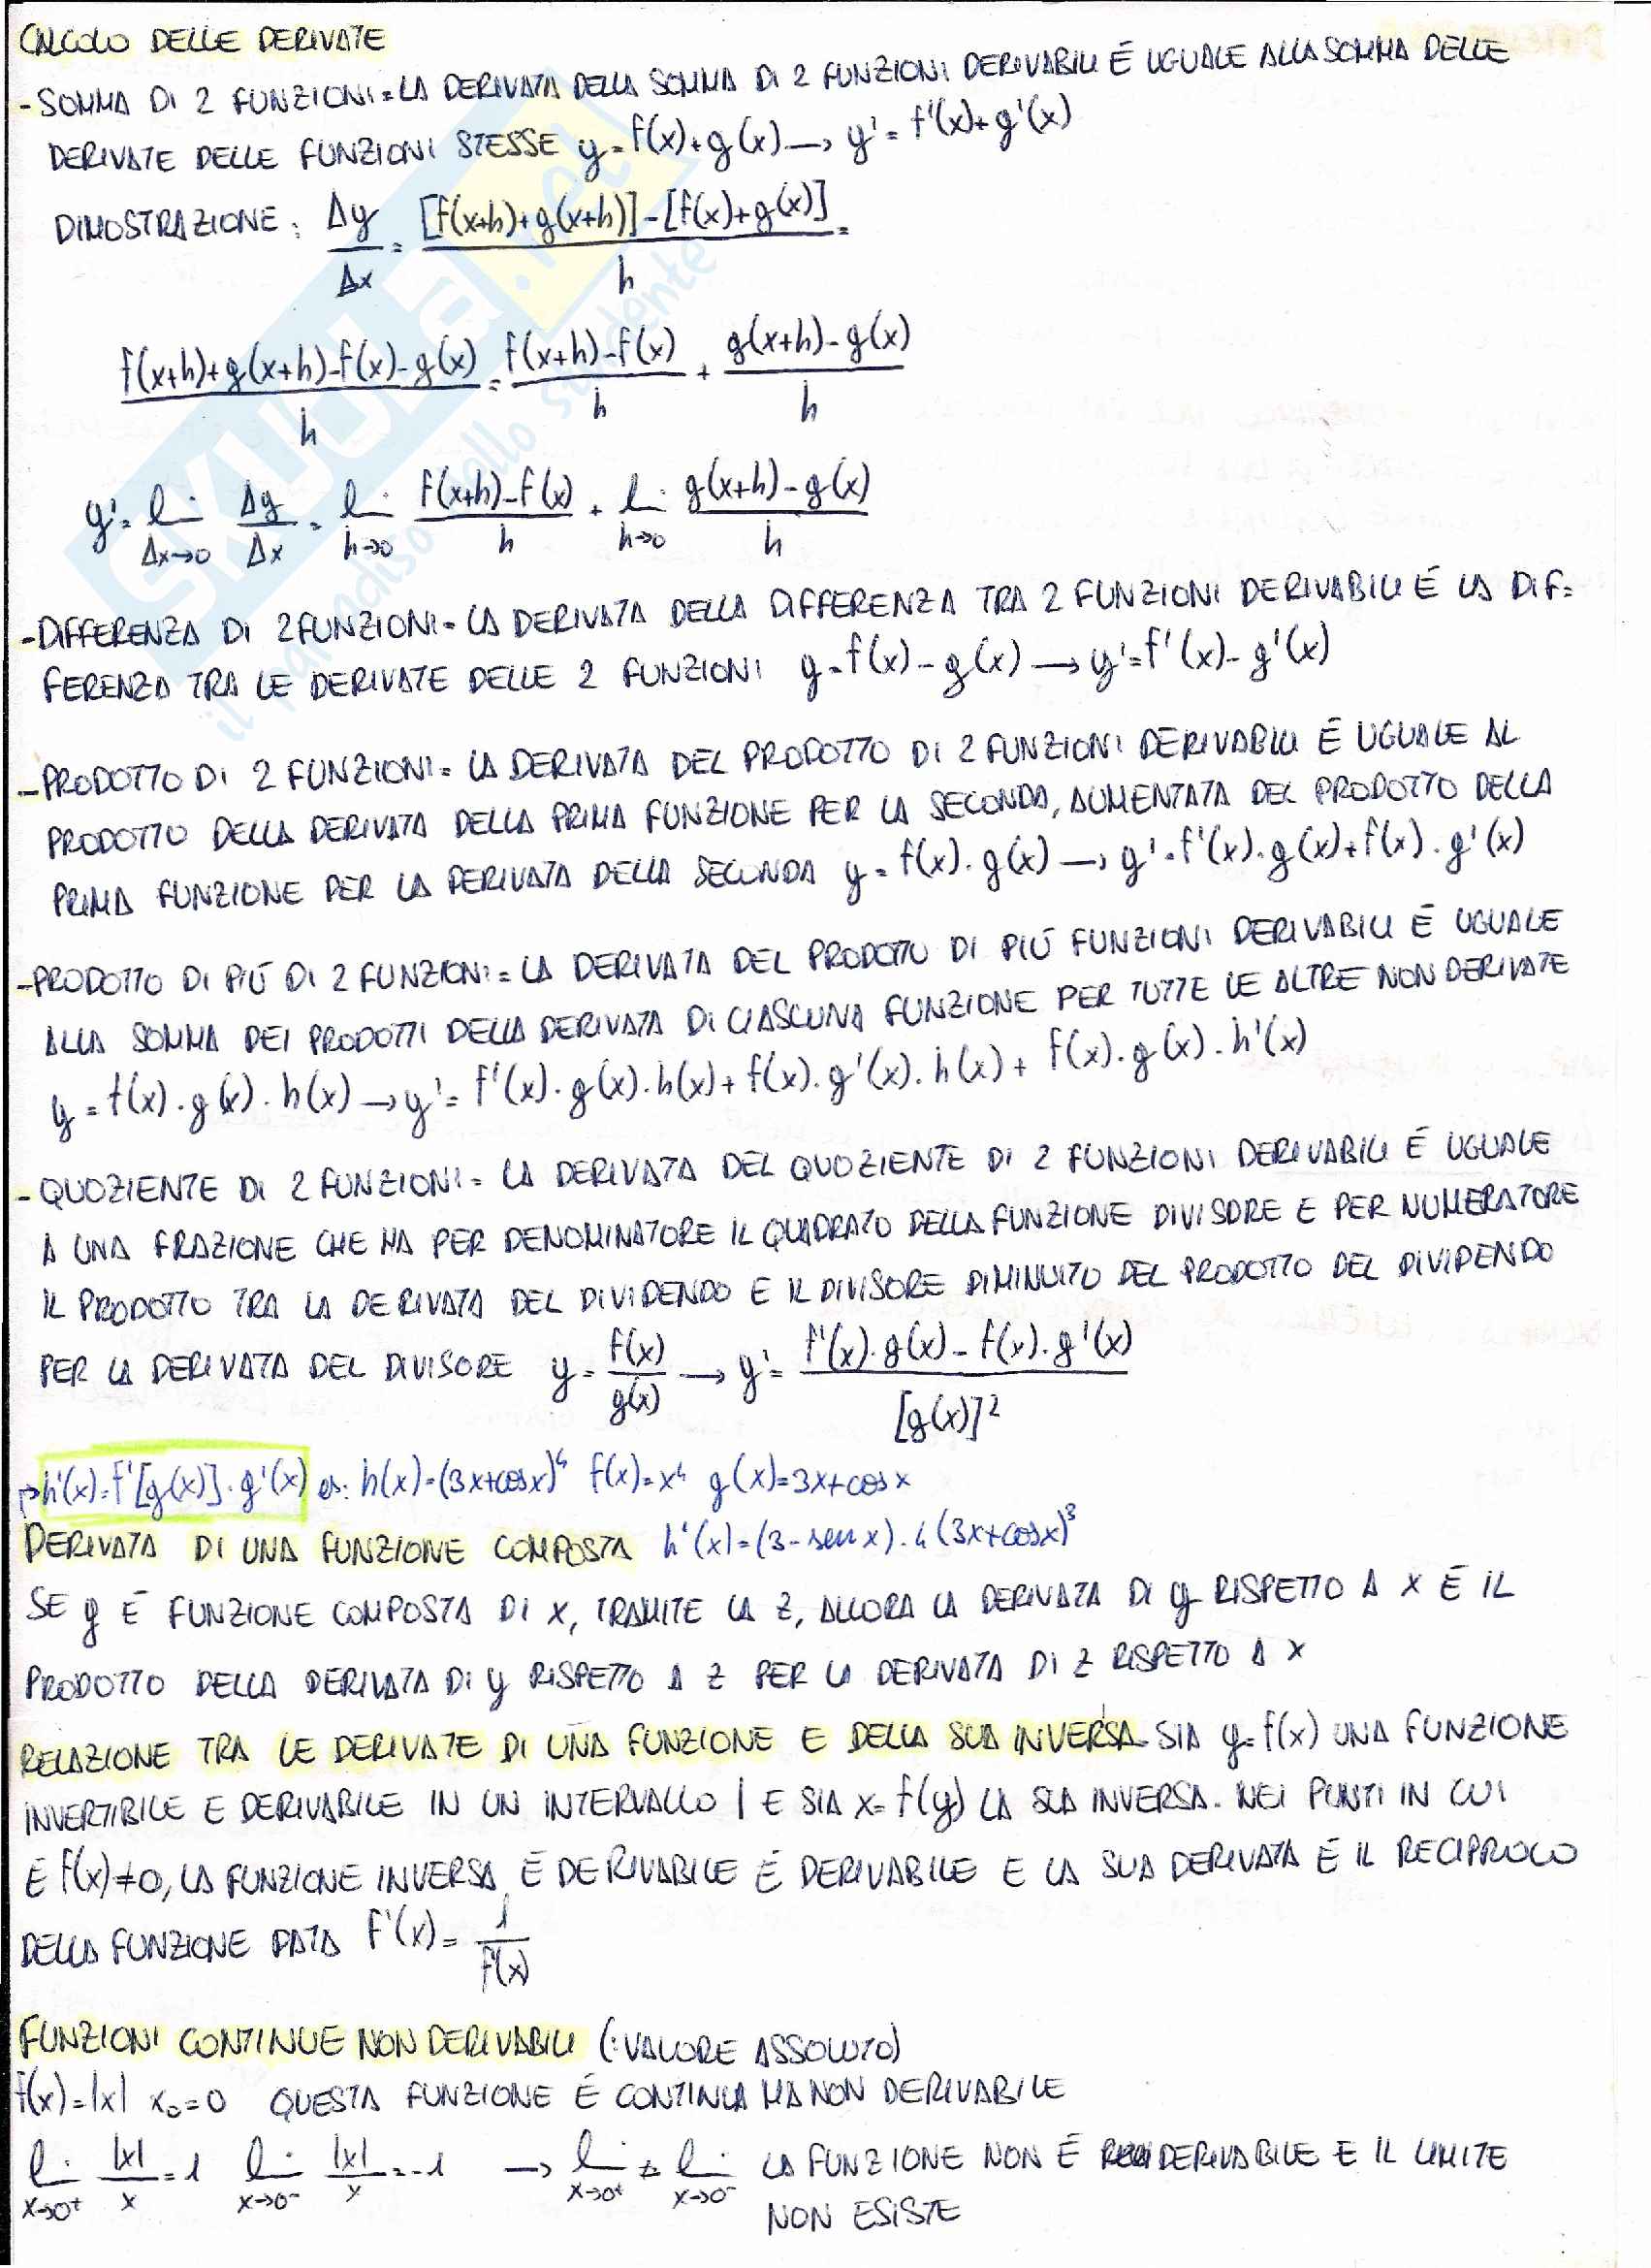 CALCOLO DELLE DERIVATE
- SOMMA DI 2 FUNZIONI = LA DERIVATA DELLA SOMMA DI 2 FUNZIONI DERIVABILI É UGUALE ALLA SOMMA DELLE
DERIVATE DELLE FUNZIONI STESSE y = f(x) + g(x) → y' = f'(x) + g'(x)
DIMOSTRAZIONE: Δy/Δx = [f(x+h)+g(x+h)] - [f(x)+g(x)] / h =
f(x+h)+g(x+h)-f(x)-g(x) / h = f(x+h)-f(x) / h + g(x+h)-g(x) / h
y' = lim Δx→0 Δy/Δx = lim h→0 f(x+h)-f(x) / h + lim h→0 g(x+h)-g(x) / h
- DIFFERENZA DI 2 FUNZIONI = LA DERIVATA DELLA DIFFERENZA TRA 2 FUNZIONI DERIVABILI É LA DIF=
FERENZA TRA LE DERIVATE DELLE 2 FUNZIONI y = f(x) - g(x) → y' = f'(x) - g'(x)
- PRODOTTO DI 2 FUNZIONI = LA DERIVATA DEL PRODOTTO DI 2 FUNZIONI DERIVABILI É UGUALE AL
PRODOTTO DELLA DERIVATA DELLA PRIMA FUNZIONE PER LA SECONDA, AUMENTATA DEL PRODOTTO DELLA
PRIMA FUNZIONE PER LA DERIVATA DELLA SECONDA y = f(x) · g(x) → y' = f'(x) · g(x) + f(x) · g'(x)
- PRODOTTO DI PIÚ DI 2 FUNZIONI = LA DERIVATA DEL PRODOTTO DI PIÚ FUNZIONI DERIVABILI É UGUALE
ALLA SOMMA DEI PRODOTTI DELLA DERIVATA DI CIASCUNA FUNZIONE PER TUTTE LE ALTRE NON DERIVATE
y = f(x) · g(x) · h(x) → y' = f'(x) · g(x) · h(x) + f(x) · g'(x) · h(x) + f(x) · g(x) · h'(x)
- QUOZIENTE DI 2 FUNZIONI = LA DERIVATA DEL QUOZIENTE DI 2 FUNZIONI DERIVABILI É UGUALE
A UNA FRAZIONE CHE HA PER DENOMINATORE IL QUADRATO DELLA FUNZIONE DIVISORE E PER NUMERATORE
IL PRODOTTO TRA LA DERIVATA DEL DIVIDENDO E IL DIVISORE DIMINUITO DEL PRODOTTO DEL DIVIDENDO
PER LA DERIVATA DEL DIVISORE y = f(x)/g(x) → y' = f'(x) · g(x) - f(x) · g'(x) / [g(x)]²
→ h'(x) = f'[g(x)] · g'(x) es: h(x) = (3x+cosx)⁴ f(x) = x⁴ g(x) = 3x + cos x
DERIVATA DI UNA FUNZIONE COMPOSTA h'(x) = (3 - sen x) · 4 (3x+cosx)³
SE y É FUNZIONE COMPOSTA DI X, TRAMITE LA Z, ALLORA LA DERIVATA DI y RISPETTO A X É IL
PRODOTTO DELLA DERIVATA DI y RISPETTO A Z PER LA DERIVATA DI Z RISPETTO A X
RELAZIONE TRA LE DERIVATE DI UNA FUNZIONE E DELLA SUA INVERSA - SIA y = f(x) UNA FUNZIONE
INVERTIBILE E DERIVABILE IN UN INTERVALLO I E SIA x = f(y) LA SUA INVERSA. NEI PUNTI IN CUI
É f(x) ≠ 0, LA FUNZIONE INVERSA É DERIVABILE É DERIVABILE E LA SUA DERIVATA É IL RECIPROCO
DELLA FUNZIONE DATA f'(x) = 1/f(x)
FUNZIONI CONTINUE NON DERIVABILI (: VALORE ASSOLUTO)
f(x) = |x| x₀ = 0 QUESTA FUNZIONE É CONTINUA MA NON DERIVABILE
lim x→0⁺ |x|/x = 1 lim x→0⁻ |x|/x = -1 → lim x→0⁺ ≠ lim x→0⁻ LA FUNZIONE NON É DERIVABILE E IL LIMITE
NON ESISTE
SKUOLA.net
il paradiso dello studente